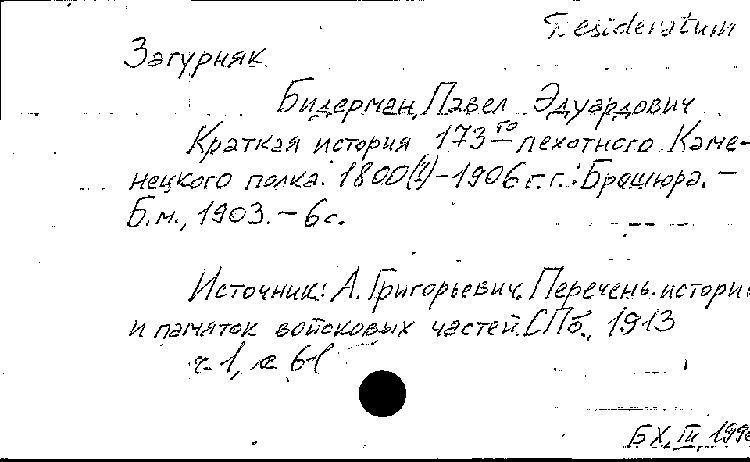 Desideratum
Загурняк
Бидерман, Павел Эдуардович
Краткая история 173го пехотного Каме-
нецкого полка. 1800(?)-1906 г.г. Брошюра. –
Б.м., 1903. – 6 с.
Источник: А. Григорьевич. Перечень истори
и памяток войсковых частей. СПб., 1913
ч 1, с 61
БХ, III, 199